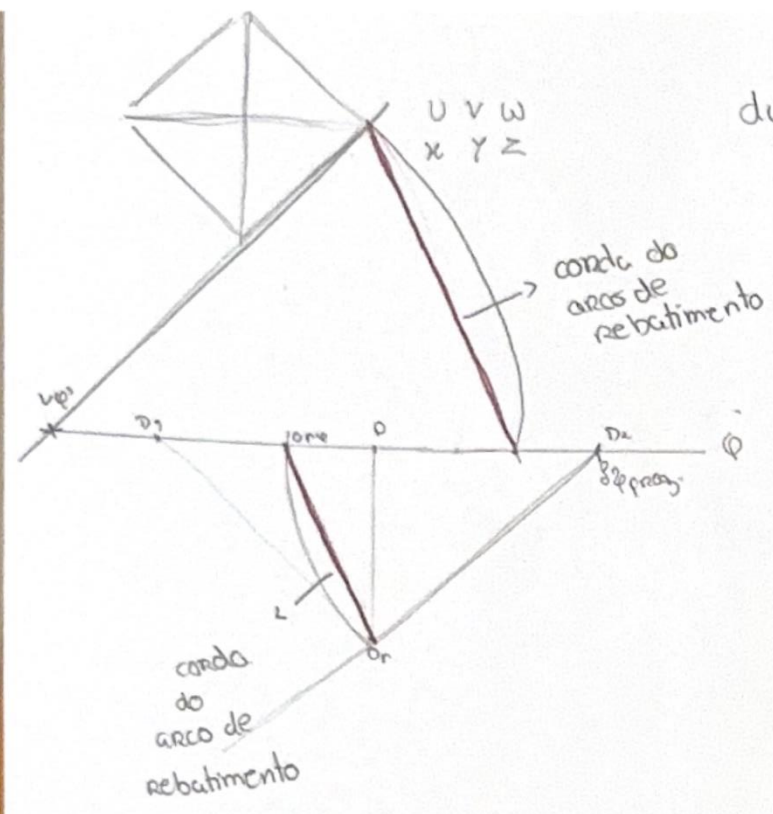 U V W
X Y Z
du
corda do
arco de
rebatimento
D1
O
D2
Or
corda
do
arco de
rebatimento